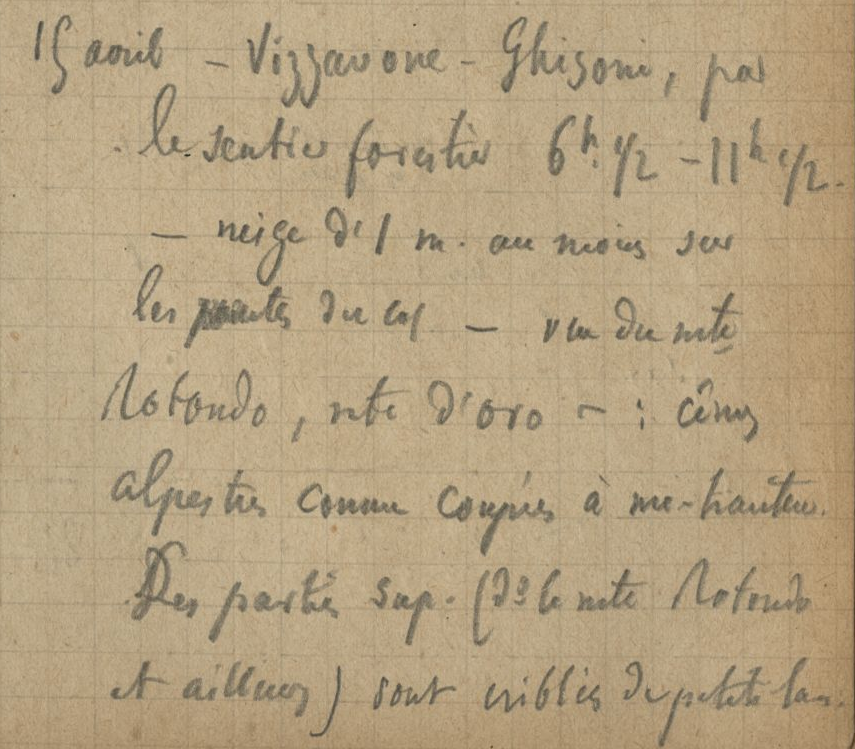 15 avril – Vizzavone – Ghisoni, par
le sentier forestier 6h. 1/2 – 11h 1/2.
– neige d'1 m. au moins sur
les pentes du col – vu du mte
Rotondo, mte d'oro – : cîmes
alpestres comme coupées à mi-hauteur.
Les parties sup. (do le mte Rotondo
et ailleurs) sont criblées de petits lacs.